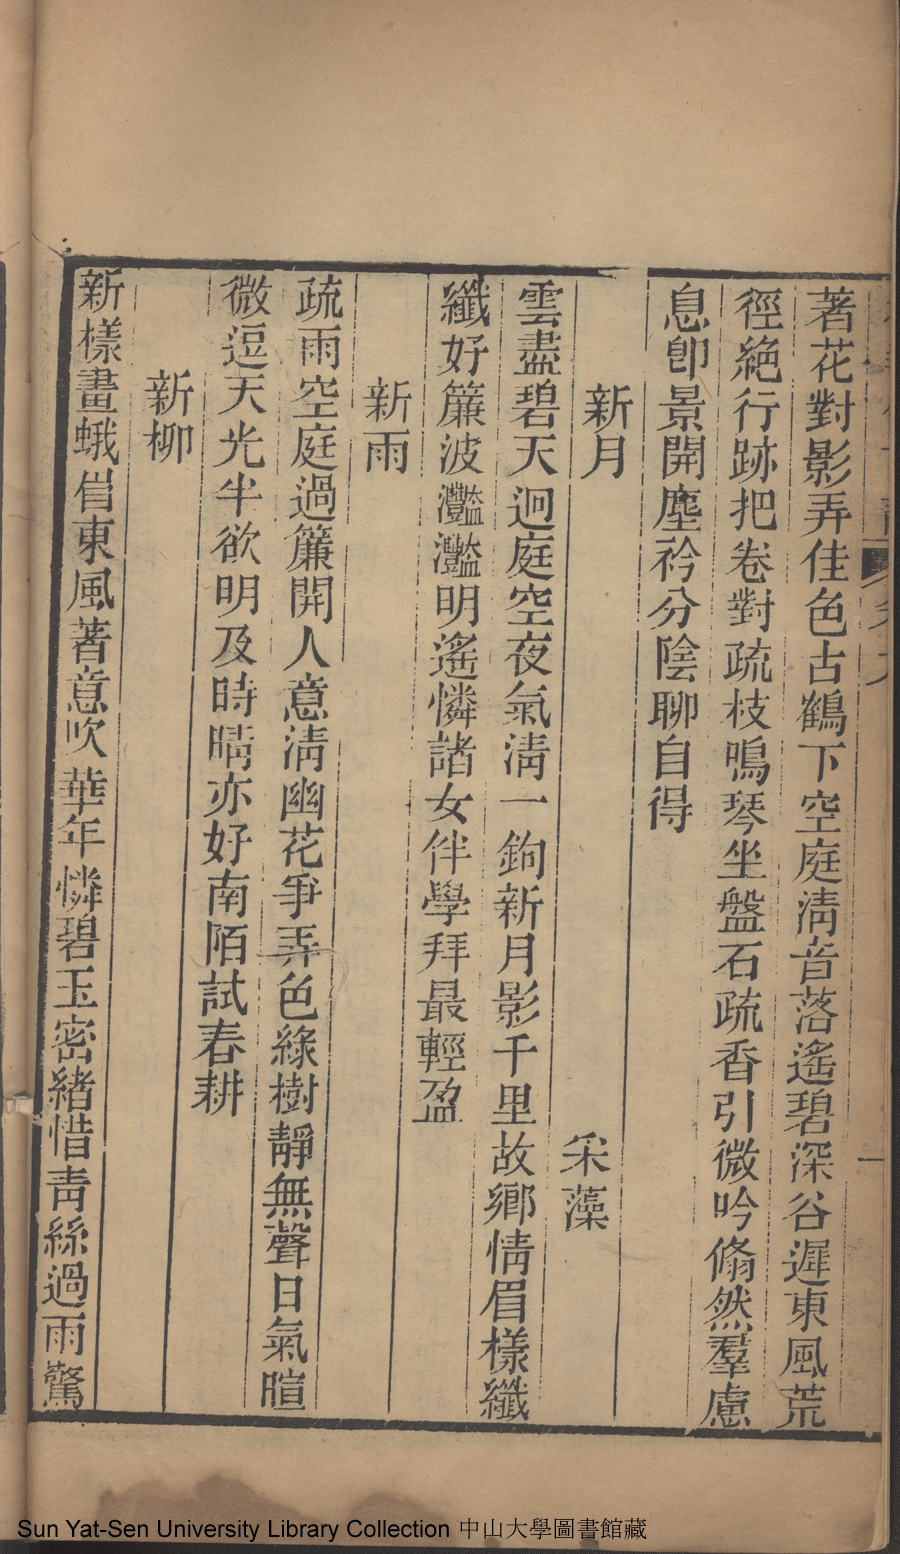 著花對影弄佳色古鶴下空庭淸音落遙碧深谷遲東風荒
徑絶行跡把卷對疏枝鳴琴坐盤石疏香引微吟翛然羣慮
息卽景開塵衿分陰聊自得
新月
采藻
雲盡碧天迥庭空夜氣淸一鉤新月影千里故鄉情眉樣纖
纖好簾波灩灩明遙憐諸女伴學拜最輕盈
新雨
疏雨空庭過簾開人意淸幽花爭弄色綠樹靜無聲日氣暄
微逗天光半欲明及時晴亦好南陌試春耕
新柳
新樣畫蛾眉東風著意吹華年憐碧玉密緒惜靑絲過雨驚
Sun Yat-Sen University Library Collection 中山大學圖書館藏